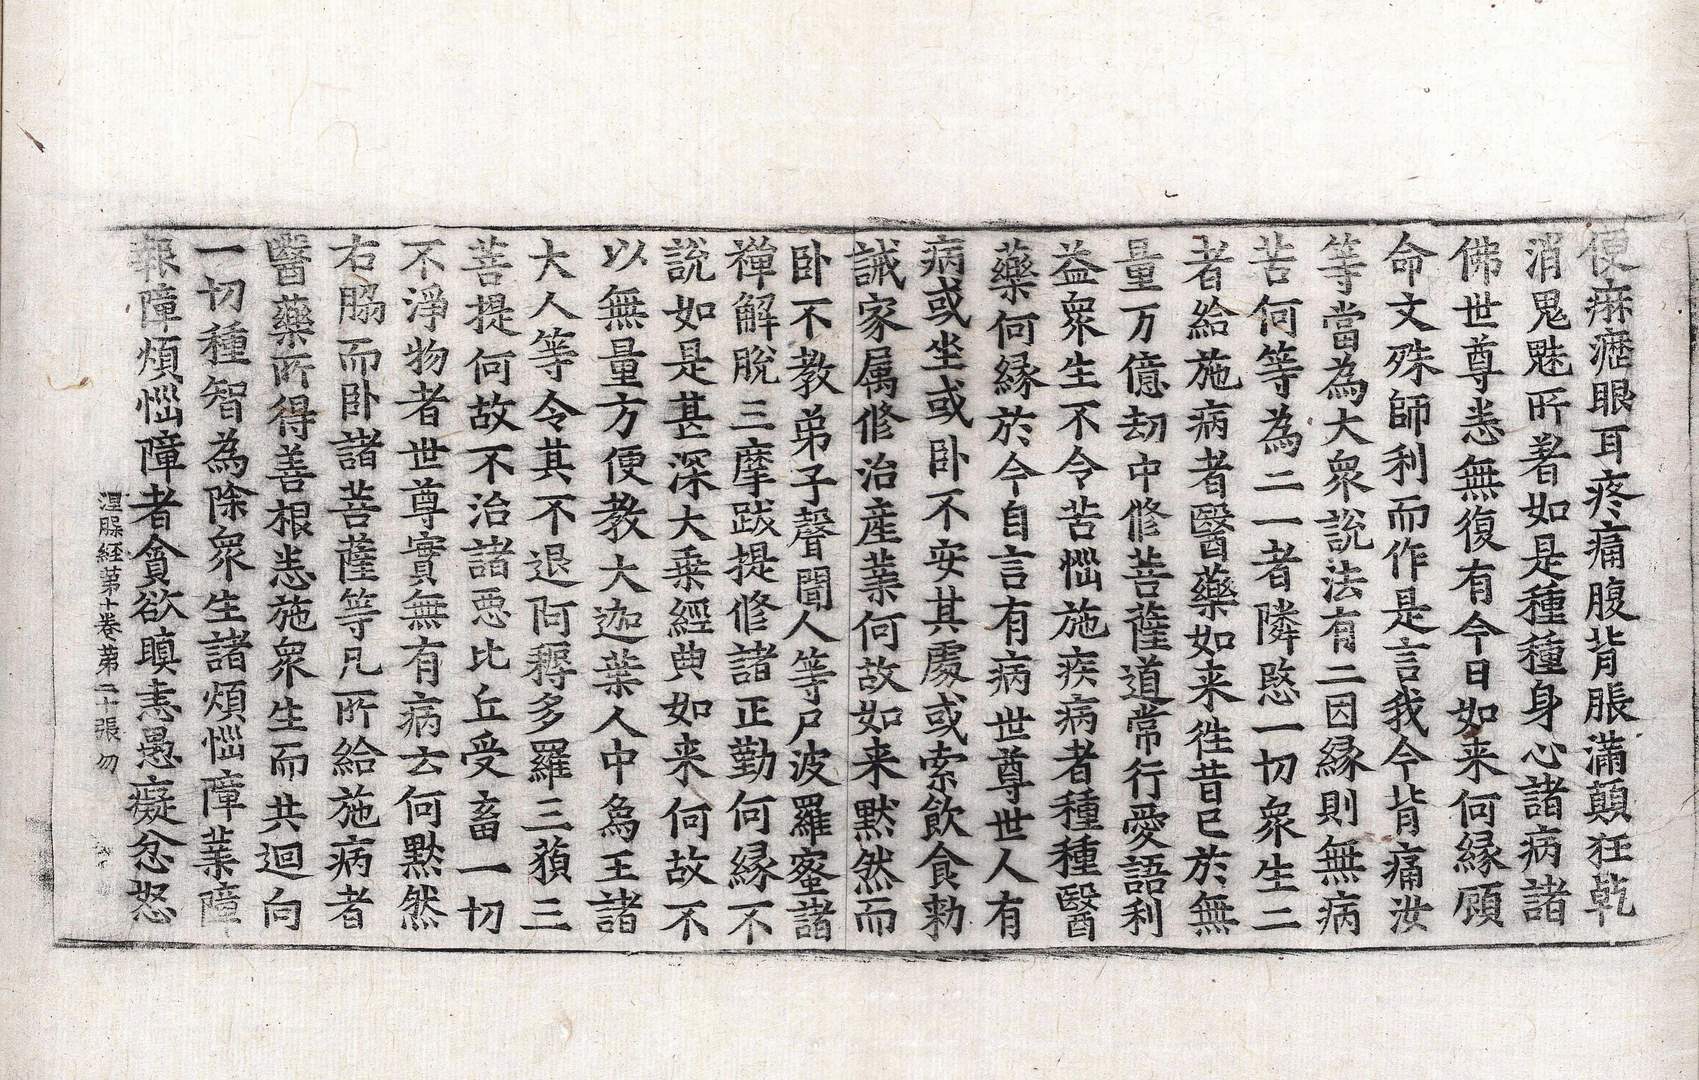 便痳瀝眼耳疼痛腹背脹滿顛狂乾
消鬼魅所著如是種種身心諸病諸
佛世尊悉無復有今日如来何縁顧
命文殊師利而作是言我今背痛汝
等當為大衆說法有二因縁則無病
苦何等為二一者隣愍一切衆生二
者給施病者醫藥如来徃昔已於無
量万億劫中修菩薩道常行愛語利
益衆生不令苦惱施疾病者種種醫
藥何縁於今自言有病世尊世人有
病或坐或卧不安其處或索飲食勑
誡家属修治産業何故如来默然而
卧不教弟子聲聞人等尸波羅蜜諸
禪解脫三摩跋提修諸正勤何縁不
說如是甚深大乗經典如来何故不
以無量方便教大迦葉人中為王諸
大人等令其不退阿耨多羅三藐三
菩提何故不治諸惡比丘受畜一切
不淨物者世尊實無有病云何黙然
右脇而卧諸菩薩等凡所給施病者
醫藥所得善根悉施衆生而共迴向
一切種智為除衆生諸煩惱障業障
報障煩惱障者貪欲瞋恚愚癡忿怒
涅槃經第十卷第二十張 勿